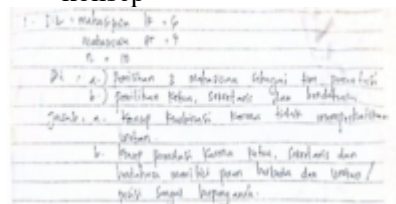 konsep
1. Dik = mahasiswa lk = 6
mahasiswa pr = 4
n = 10
Dit = a.) Pemilihan 3 mahasiswa sebagai tim
b.) pemilihan Ketua, sekretaris dan bendahara
Jawab. a. Konsep Kombinasi karena tidak memperhatikan
urutan.
b. Konsep permutasi karena Ketua, sekretaris dan
bendahara memiliki peran berbeda dan urutan /
posisi sangat berpengaruh.